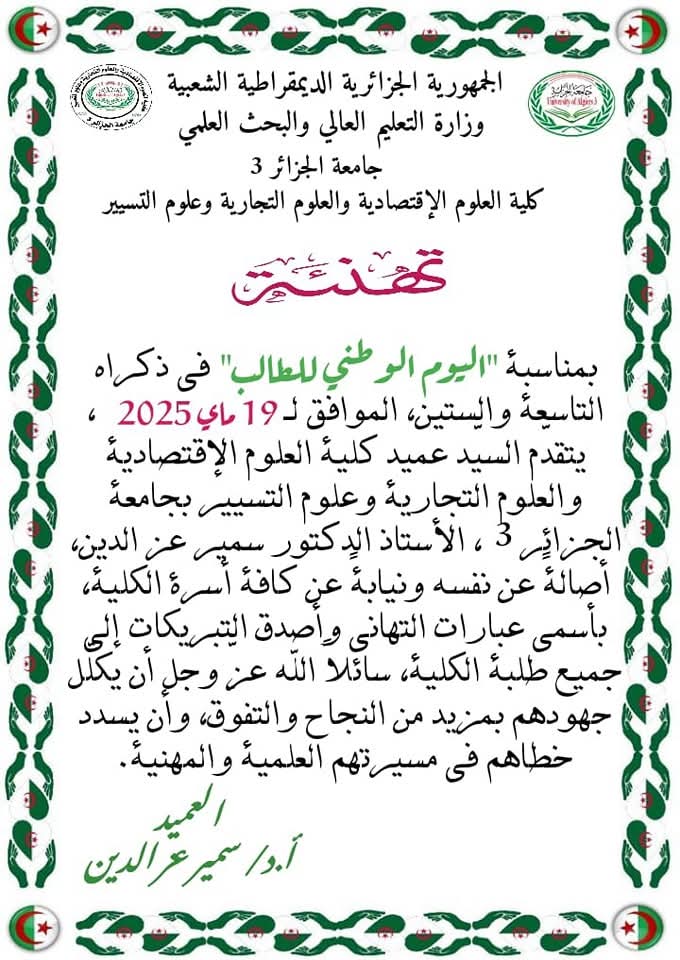 الجمهورية الجزائرية الديمقراطية الشعبية
وزارة التعليم العالي والبحث العلمي
جامعة الجزائر 3
كلية العلوم الإقتصادية والعلوم التجارية وعلوم التسيير
جامعة الجزائر 3
University of Algiers 3
تهنئة
بمناسبة "اليوم الوطني للطالب" في ذكراه
التاسعة والستين، الموافق لـ 19 ماي 2025 ،
يتقدم السيد عميد كلية العلوم الإقتصادية
والعلوم التجارية وعلوم التسيير بجامعة
الجزائر 3 ، الأستاذ الدكتور سمير عز الدين،
أصالةً عن نفسه ونيابةً عن كافة أسرة الكلية،
بأسمى عبارات التهاني وأصدق التبريكات إلى
جميع طلبة الكلية، سائلاً اللّه عزّ وجل أن يكلّل
جهودهم بمزيد من النجاح والتفوق، وأن يسدد
خطاهم في مسيرتهم العلمية والمهنية.
العميد
أ.د/ سمير عز الدين